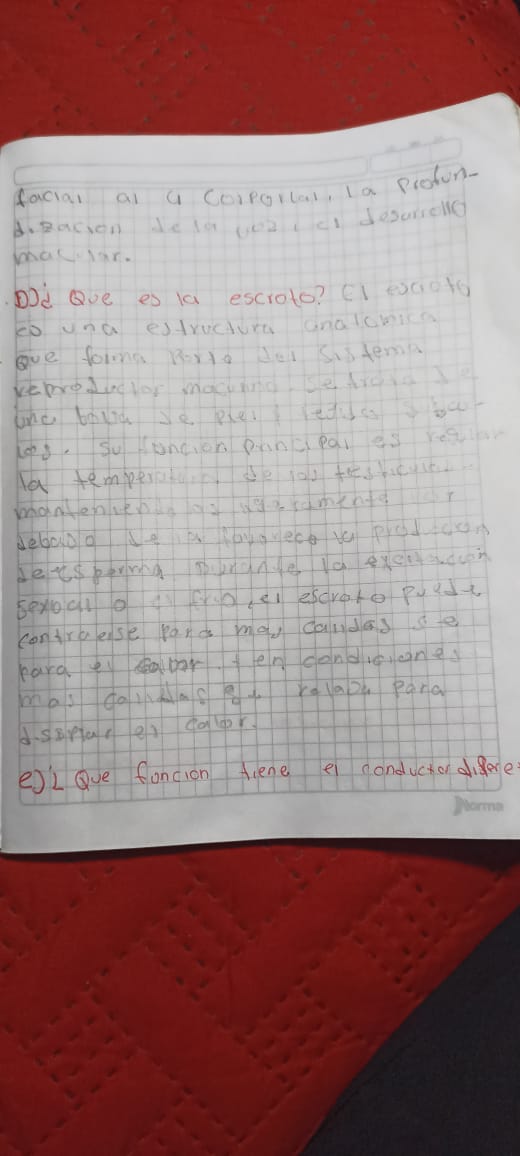 facial al a corporal, la profun-
dización de la voz, el desarrollo
D)¿ Que es la escroto? El escroto
es una estructura anatomica
que forma parte del sistema
reproductor se trata de
una bolsa de piel
su funcion principal es regular
la temperatura de los testiculos
debajo de la favorece la produccion
de esperma Durante la excitacion
sexual o el frio, el escroto puede
contraerse para mas
para el calor. en condiciones
mas calidas se relaja para
disipar el calor.
e)¿ Que funcion tiene el conductor difere-
Norma